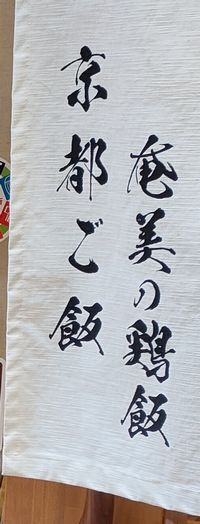 奄美の鶏飯
京都ご飯